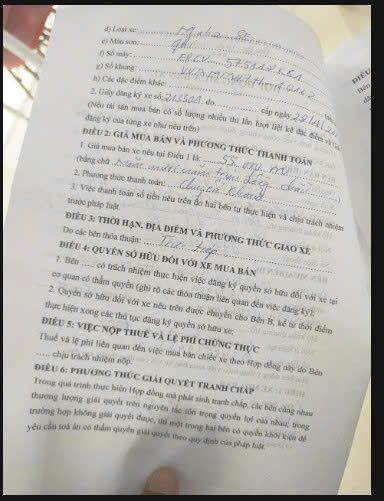 d) Loại xe:
e) Màu sơn: ghi
f) Số máy:
g) Số khung:
h) Các đặc điểm khác:
2. Giấy đăng ký số: do cấp ngày
(Nếu tài sản mua bán có số lượng nhiều thì lần lượt liệt kê đặc điểm và
đăng ký của từng xe như nêu trên)
ĐIỀU 2: GIÁ MUA BÁN VÀ PHƯƠNG THỨC THANH TOÁN
1. Giá mua bán xe nêu tại Điều 1 là:
(bằng chữ
2. Phương thức thanh toán: chuyển khoản
3. Việc thanh toán số tiền nêu trên do hai bên tự thực hiện và chịu trách nhiệm
trước pháp luật.
ĐIỀU 3: THỜI HẠN, ĐỊA ĐIỂM VÀ PHƯƠNG THỨC GIAO XE
Do các bên thỏa thuận: Trực tiếp
ĐIỀU 4: QUYỀN SỞ HỮU ĐỐI VỚI XE MUA BÁN
1. Bên ..... có trách nhiệm thực hiện việc đăng ký quyền sở hữu đối với xe tại
cơ quan có thẩm quyền (ghi rõ các thỏa thuận liên quan đến việc đăng ký);
2. Quyền sở hữu đối với xe nêu trên được chuyển cho Bên B, kể từ thời điểm
thực hiện xong các thủ tục đăng ký quyền sở hữu xe;
ĐIỀU 5: VIỆC NỘP THUẾ VÀ LỆ PHÍ CHỨNG THỰC
Thuế và lệ phí liên quan đến việc mua bán chiếc xe theo Hợp đồng này do Bên
..... chịu trách nhiệm nộp.
ĐIỀU 6: PHƯƠNG THỨC GIẢI QUYẾT TRANH CHẤP
Trong quá trình thực hiện Hợp đồng mà phát sinh tranh chấp, các bên cùng nhau
thương lượng giải quyết trên nguyên tắc tôn trọng quyền lợi của nhau; trong
trường hợp không giải quyết được, thì một trong hai bên có quyền khởi kiện để
yêu cầu toà án có thẩm quyền giải quyết theo quy định của pháp luật.